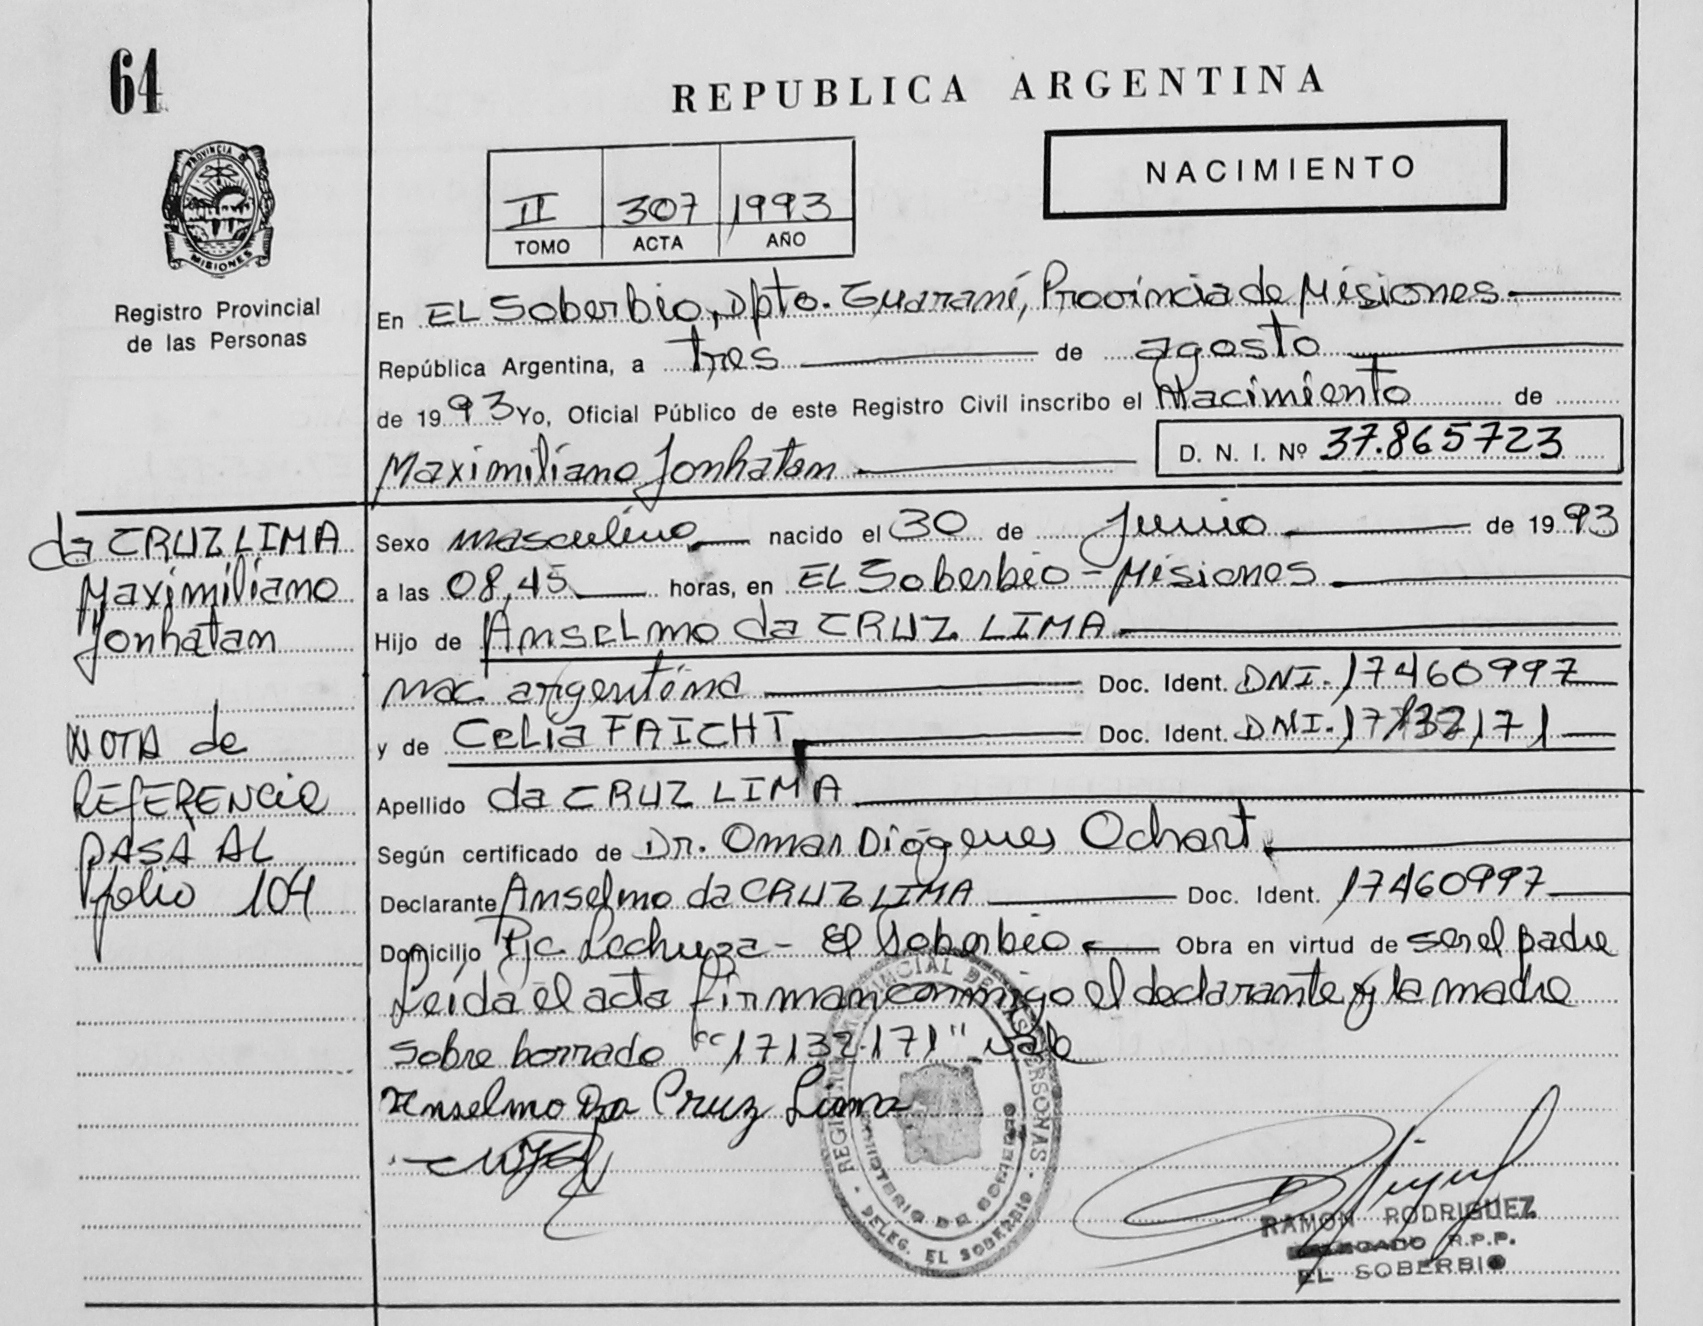 64
REPUBLICA ARGENTINA
NACIMIENTO
II 307 1993
TOMO ACTA AÑO
PROVINCIA DE
MISIONES
Registro Provincial
de las Personas
En EL Soberbio, Dpto. Guaraní, Provincia de Misiones.
República Argentina, a tres de agosto
de 1993 Yo, Oficial Público de este Registro Civil inscribo el Nacimiento de
Maximiliano Jonhatan D. N. I. Nº 37.865723
da CRUZ LIMA
Maximiliano
Jonhatan
NOTA de
REFERENCIA
PASA AL
folio 104
Sexo masculino nacido el 30 de Junio de 1993
a las 08,45 horas, en EL Soberbio - Misiones
Hijo de Anselmo da CRUZ LIMA
nac. argentina Doc. Ident. DNI. 17460997
y de Celia FAICHT Doc. Ident. DNI. 17132171
Apellido da CRUZ LIMA
Según certificado de Dr. Omar Diógenes Ochart
Declarante Anselmo da CRUZ LIMA Doc. Ident. 17460997
Domicilio Pje. Lechuza - El Soberbio Obra en virtud de ser el padre
Leída el acta firman conmigo el declarante y la madre
sobre borrado "17132.171" vale
Anselmo Da Cruz Lima
REGISTRO PROVINCIAL DE LAS PERSONAS
MINISTERIO DE GOBIERNO
DELEG. EL SOBERBIO
RAMON RODRIGUEZ
DELEGADO R.P.P.
EL SOBERBIO